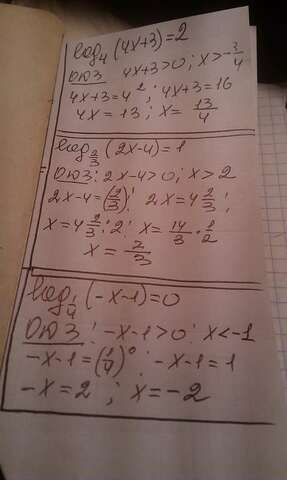 log₄(4x+3)=2
ОДЗ 4x+3>0; x>-3/4
4x+3=4²; 4x+3=16
4x=13; x=13/4
log_{2/3}(2x-4)=1
ОДЗ: 2x-4>0; x>2
2x-4=(2/3)¹; 2x=4 2/3;
x=4 2/3:2; x=14/3·1/2
x=7/3
log_{1/4}(-x-1)=0
ОДЗ: -x-1>0; x<-1
-x-1=(1/4)⁰; -x-1=1
-x=2; x=-2